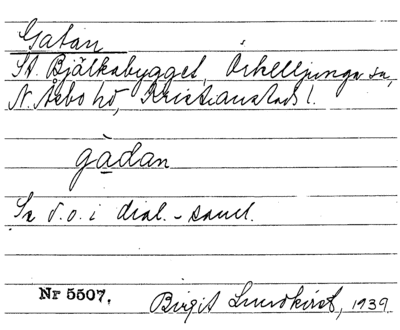 Gatan
St. Bjälkabygget, Örkelljunga sn,
N. Åsbo hd, Kristianstads l.
gàdan
Se d.o. i dial.-saml.
Nr 5507.
Birgit Lundkvist, 1939.